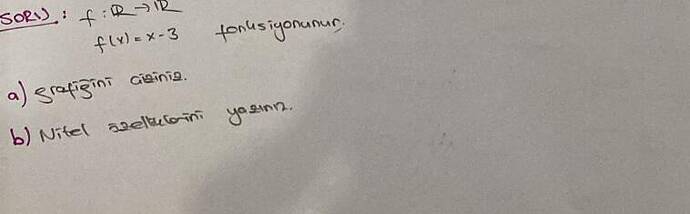 SORU: f: ℝ → ℝ
f(x) = x - 3 fonksiyonunun.
a) grafiğini çiziniz.
b) Nitel özelliklerini yazınız.